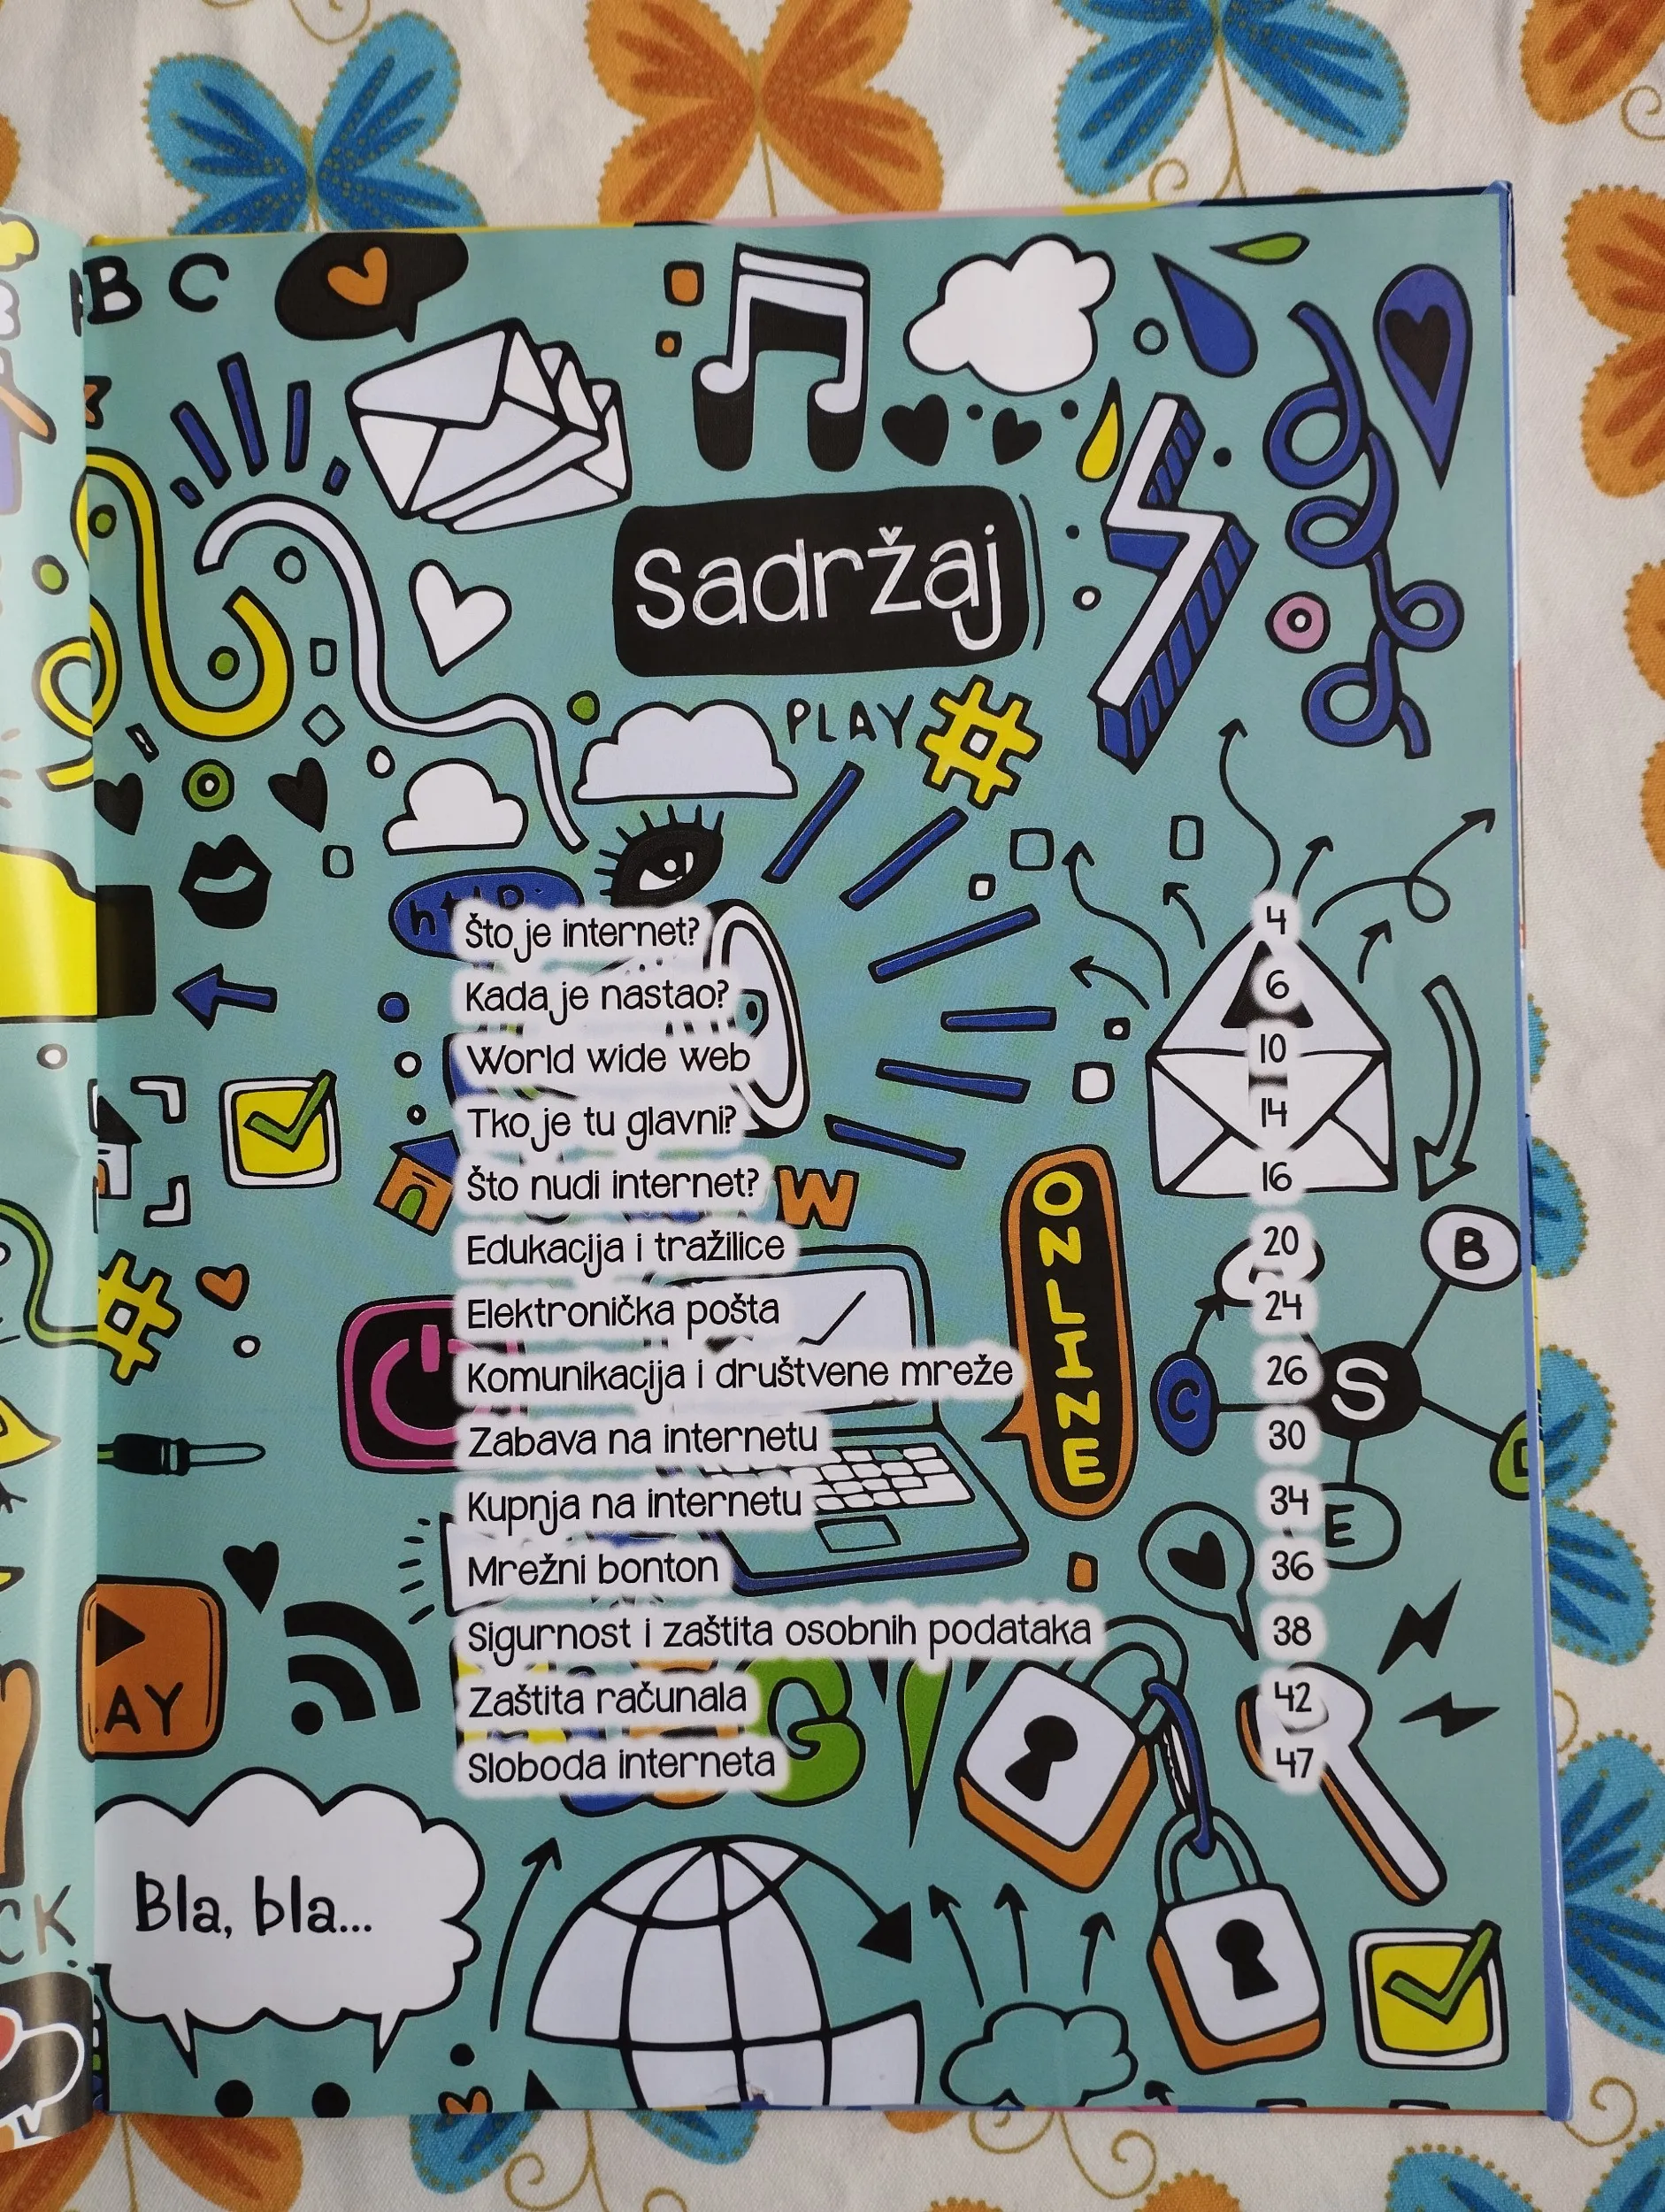 B C
Sadržaj
PLAY #
http:
Što je internet? 4
Kada je nastao? 6
World wide web 10
Tko je tu glavni? 14
Što nudi internet? 16
W
Edukacija i tražilice 20
Elektronička pošta 24
Komunikacija i društvene mreže 26
Zabava na internetu 30
Kupnja na internetu 34
Mrežni bonton 36
Sigurnost i zaštita osobnih podataka 38
Zaštita računala 42
Sloboda interneta 47
ONLINE
B
C
S
E
#
AY
G
Bla, bla...
CK